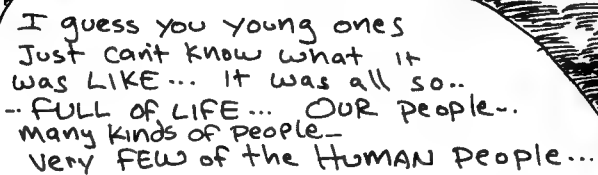 I guess you young ones
Just can't know what it
was LIKE... It was all so..
-- FULL of LIFE... OUR people-.
many kinds of people_
very FEW of the HUMAN people...